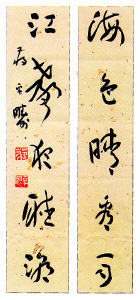 海色晴看雨
江聲夜聽潮